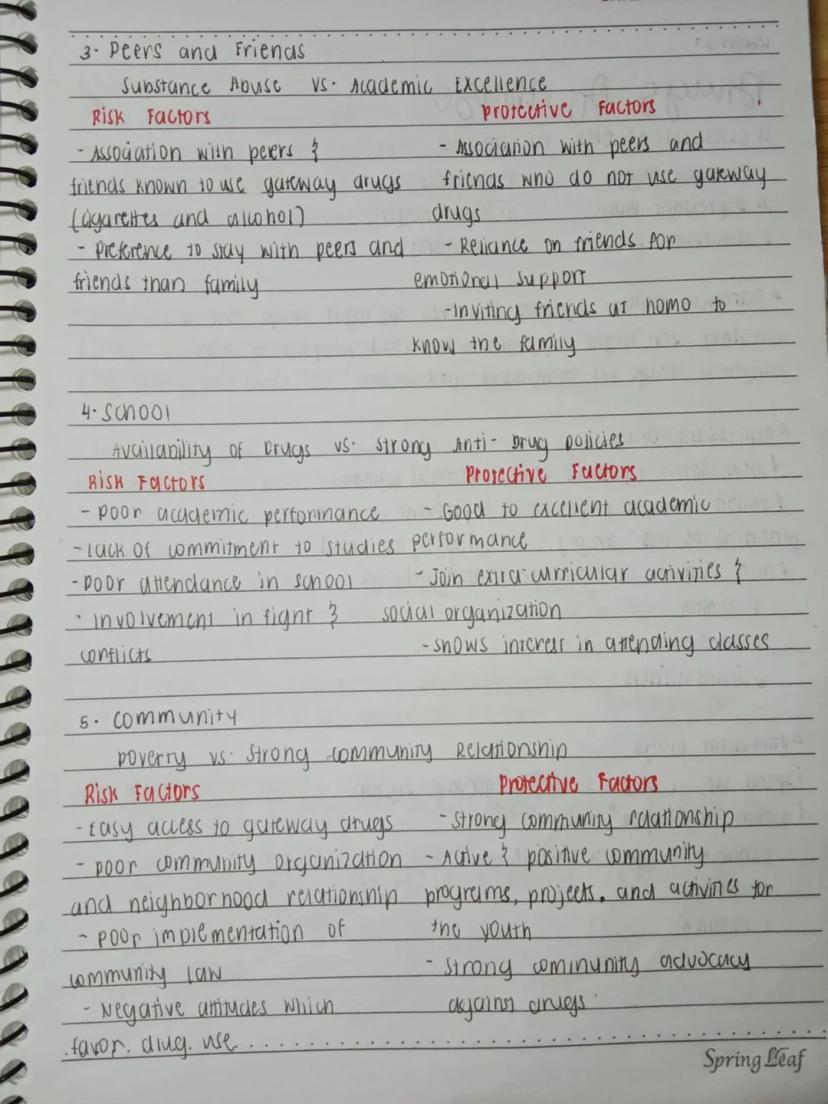 3. Peers and Friends
Substance Abuse vs. Academic Excellence
Risk Factors Protective Factors
- Association with peers & - Association with peers and
friends known to use gateway drugs friends who do not use gateway
(cigarettes and alcohol) drugs
- Preference to stay with peers and - Reliance on friends for
friends than family emotional support
- Inviting friends at homo to
know the family
4. School
Availability of Drugs vs. Strong Anti-Drug policies
Risk Factors Protective Factors
- poor academic performance - Good to excellent academic
- lack of commitment to studies performance
- poor attendance in school - Join extra-curricular activities &
- involvement in fight & social organization
conflicts - shows interest in attending classes
5. Community
poverty vs. Strong community Relationship
Risk Factors Protective Factors
- Easy access to gateway drugs - Strong community relationship
- poor community organization - Active & positive community
and neighborhood relationship programs, projects, and activities for
- poor implementation of the youth
community law - Strong community advocacy
- Negative attitudes which against drugs
favor drug use
Spring Leaf